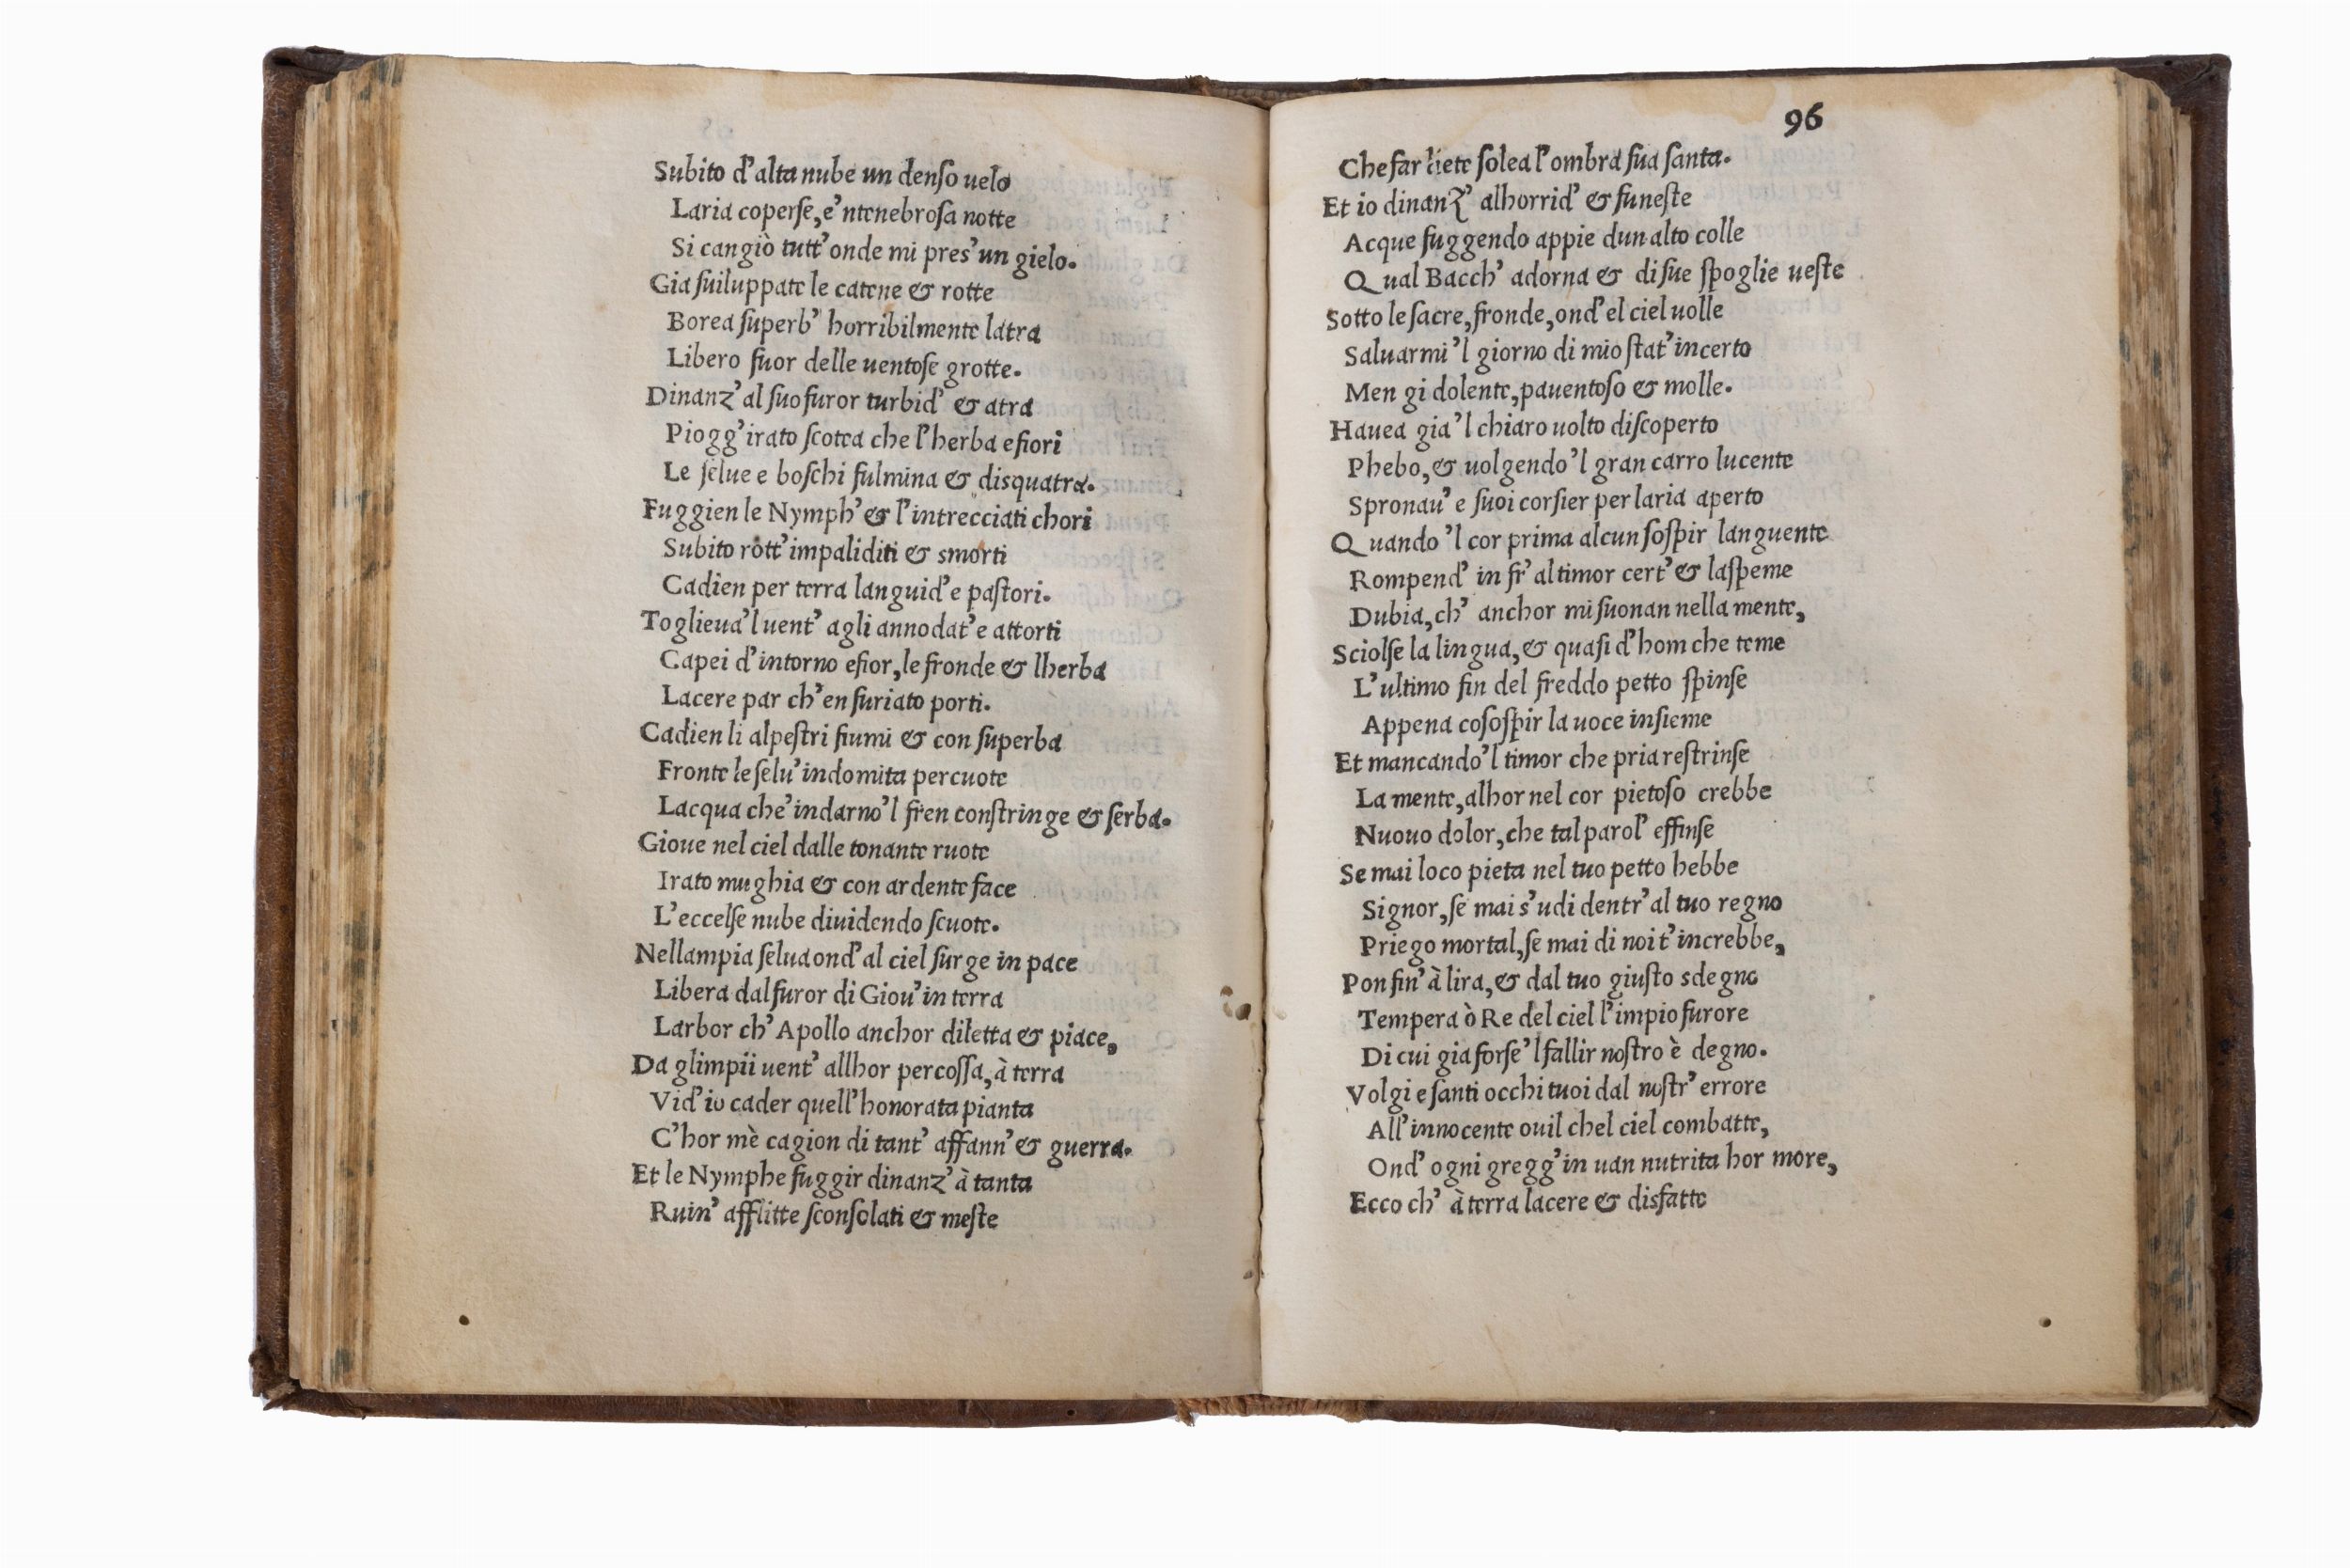 Subito d'alta nube un denso uelo
Laria coperse, e'ntenebrosa notte
Si cangiò tutt'onde mi pres'un gielo.
Gia suiluppate le catene & rotte
Borea superb' horribilmente latra
Libero fuor delle uentose grotte.
Dinanz' al suo furor turbid' & atra
Piogg'irato scotea che l'herba e fiori
Le selue e boschi fulmina & disquatra.
Fuggien le Nymph' & l'intrecciati chori
Subito rott'impaliditi & smorti
Cadien per terra languid'e pastori.
Toglieua'l uent' agli annodat'e attorti
Capei d'intorno e fior, le fronde & lherba
Lacere par ch'en furiato porti.
Cadien li alpestri fiumi & con superba
Fronte le selu'indomita percuote
Lacqua che'indarno'l fren constringe & serba.
Gioue nel ciel dalle tonante ruote
Irato mughia & con ardente face
L'eccelse nube diuidendo scuote.
Nellampia selua ond'al ciel surge in pace
Libera dal furor di Giou'in terra
Larbor ch'Apollo anchor diletta & piace,
Da glimpii uent' allhor percossa, à terra
Vid'io cader quell'honorata pianta
C'hor mè cagion di tant' affann' & guerra.
Et le Nymphe fuggir dinanz' à tanta
Ruin' afflitte sconsolati & meste
96
Che far liete solea l'ombra sua santa.
Et io dinanz' alhorrid' & funeste
Acque fuggendo appie dun alto colle
Qual Bacch' adorna & di sue spoglie ueste
Sotto le sacre, fronde, ond'el ciel uolle
Saluarmi'l giorno di mio stat'incerto
Men gi dolente, pauentoso & molle.
Hauea gia'l chiaro uolto discoperto
Phebo, & uolgendo'l gran carro lucente
Spronau' e suoi corsier per laria aperto
Quando'l cor prima alcun sospir languente
Rompend' in fr'al timor cert' & laspeme
Dubia, ch' anchor mi suonan nella mente,
Sciolse la lingua, & quasi d'hom che teme
L'ultimo fin del freddo petto spinse
Appena cosospir la uoce insieme
Et mancando'l timor che pria restrinse
La mente, alhor nel cor pietoso crebbe
Nuouo dolor, che tal parol' effinse
Se mai loco pieta nel tuo petto hebbe
Signor, se mai s'udi dentr'al tuo regno
Priego mortal, se mai di noi t'increbbe,
Pon fin' à lira, & dal tuo giusto sdegno
Tempera ò Re del ciel l'impio furore
Di cui gia forse'l fallir nostro è degno.
Volgi e santi occhi tuoi dal nostr'errore
All'innocente ouil chel ciel combatte,
Ond' ogni gregg'in uan nutrita hor more,
Ecco ch' à terra lacere & disfatte